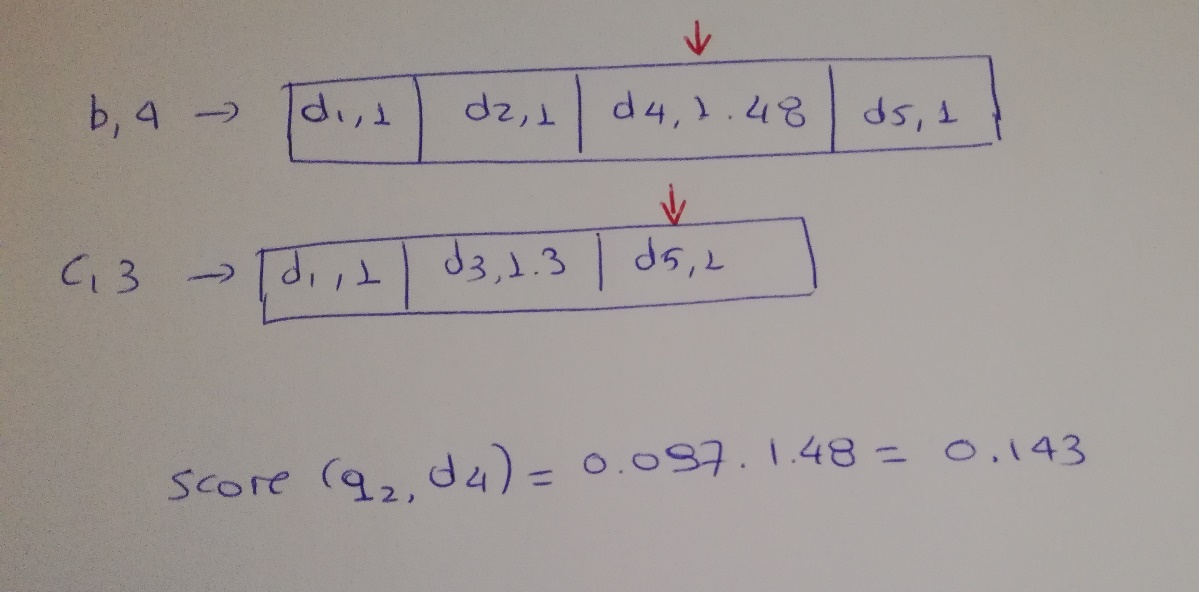 b, 4 → d1, 1 | d2, 1 | d4, 1.48 | d5, 1
c, 3 → d1, 1 | d3, 1.3 | d5, 1
score (q2, d4) = 0.097 . 1.48 = 0.143